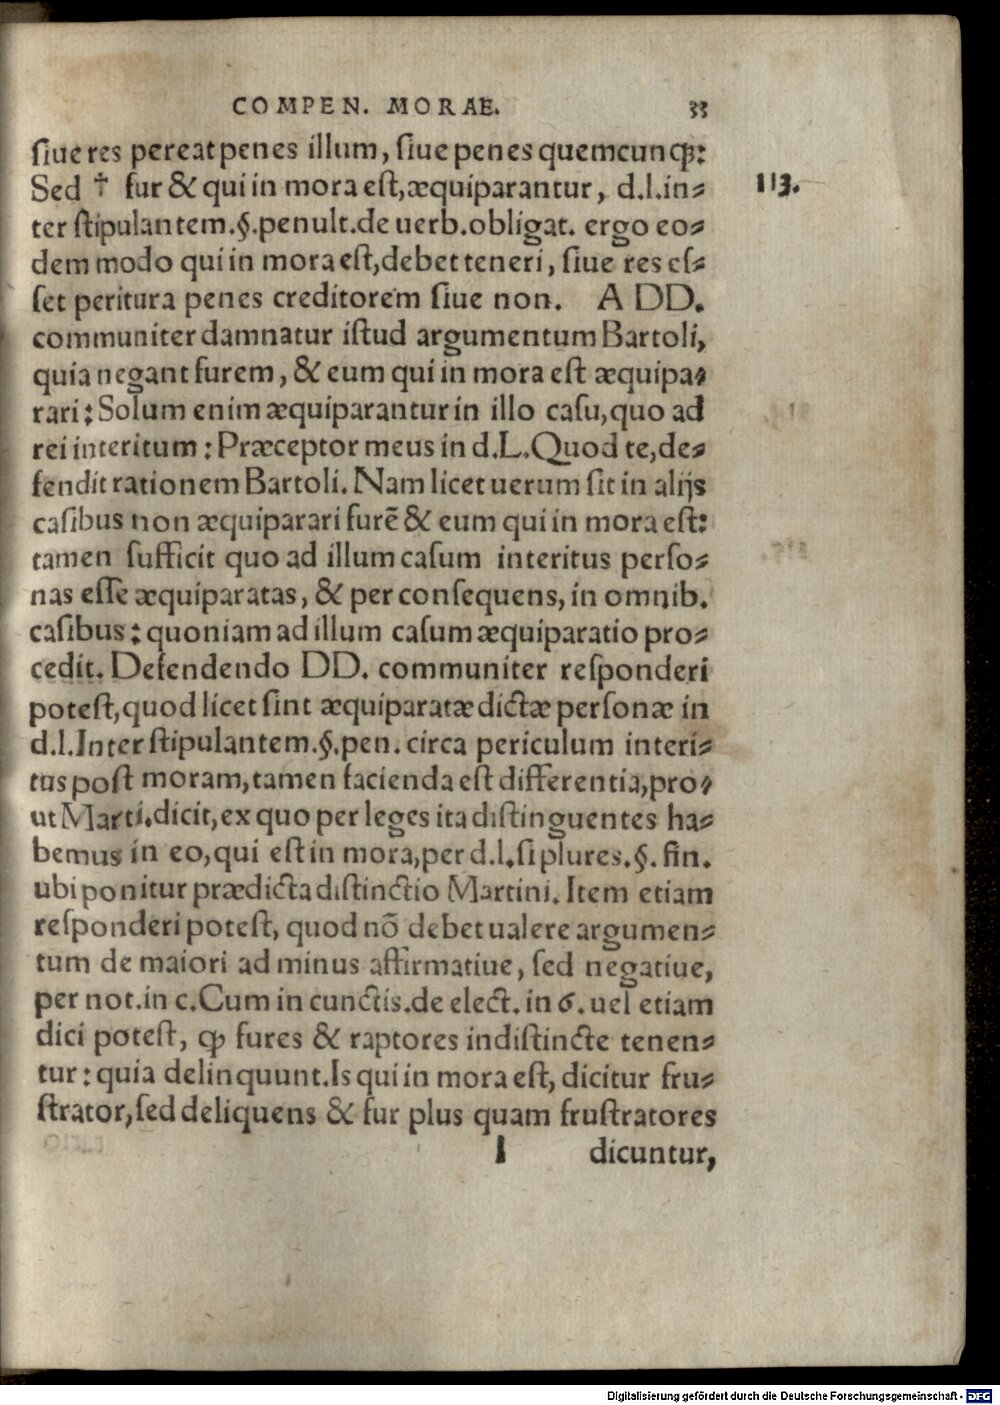 COMPEN. MORAE. 33
ſiue res pereat penes illum, ſiue penes quemcunqꝫ:
Sed † fur & qui in mora eſt, æquiparantur, d.l.in⸗ 113.
ter ſtipulantem.§.penult.de uerb.obligat. ergo eo⸗
dem modo qui in mora eſt, debet teneri, ſiue res eſ⸗
ſet peritura penes creditorem ſiue non. A DD.
communiter damnatur iſtud argumentum Bartoli,
quia negant furem, & eum qui in mora eſt æquipa⸗
rari: Solum enim æquiparantur in illo caſu, quo ad
rei interitum: Præceptor meus in d.L.Quod te, de⸗
fendit rationem Bartoli. Nam licet uerum ſit in alijs
caſibus non æquiparari furē & eum qui in mora eſt:
tamen ſufficit quo ad illum caſum interitus perſo⸗
nas eſſe æquiparatas, & per conſequens, in omnib.
caſibus: quoniam ad illum caſum æquiparatio pro⸗
cedit. Defendendo DD. communiter reſponderi
poteſt, quod licet ſint æquiparatæ dictæ perſonæ in
d.l.Inter ſtipulantem.§.pen. circa periculum interi⸗
tus poſt moram, tamen facienda eſt differentia, pro⸗
ut Marti.dicit, ex quo per leges ita diſtinguentes ha⸗
bemus in eo, qui eſt in mora, per d.l.ſi plures.§. fin.
ubi ponitur prædicta diſtinctio Martini. Item etiam
reſponderi poteſt, quod nō debet ualere argumen⸗
tum de maiori ad minus affirmatiue, ſed negatiue,
per not.in c.Cum in cunctis.de elect. in 6. uel etiam
dici poteſt, ꝙ fures & raptores indiſtincte tenen⸗
tur: quia delinquunt. Is qui in mora eſt, dicitur fru⸗
ſtrator, ſed deliquens & fur plus quam fruſtratores
I dicuntur,
Digitalisierung gefördert durch die Deutsche Forschungsgemeinschaft - DFG